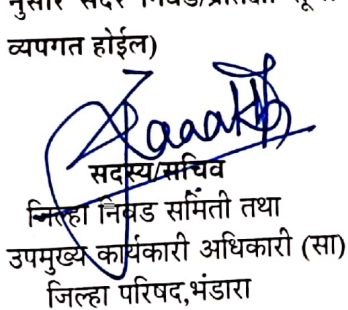 नुसार सदर निवड/प्रतिक्षा
व्यपगत होईल)
सदस्य/सचिव
जिल्हा निवड समिती तथा
उपमुख्य कार्यकारी अधिकारी (सा)
जिल्हा परिषद,भंडारा